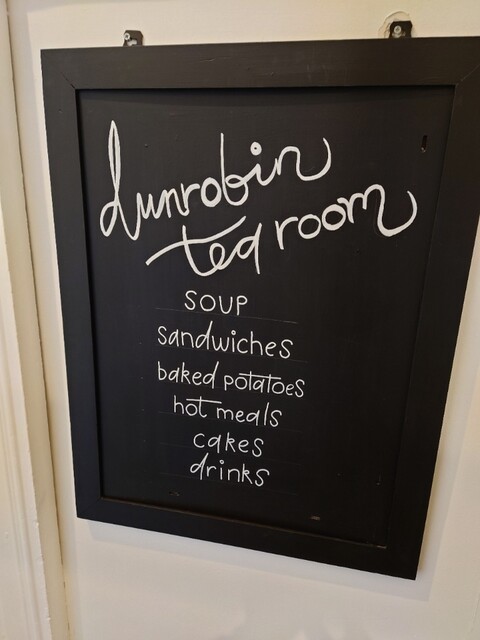 dunrobin
tea room
soup
sandwiches
baked potatoes
hot meals
cakes
drinks